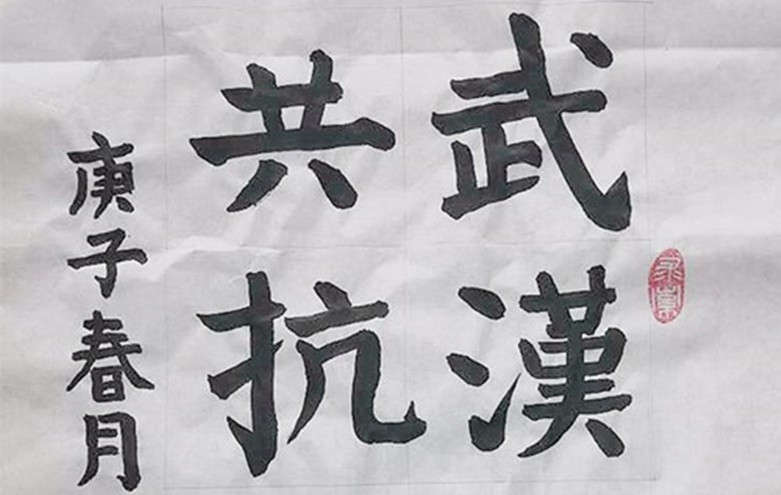 武漢
共抗
庚子春月